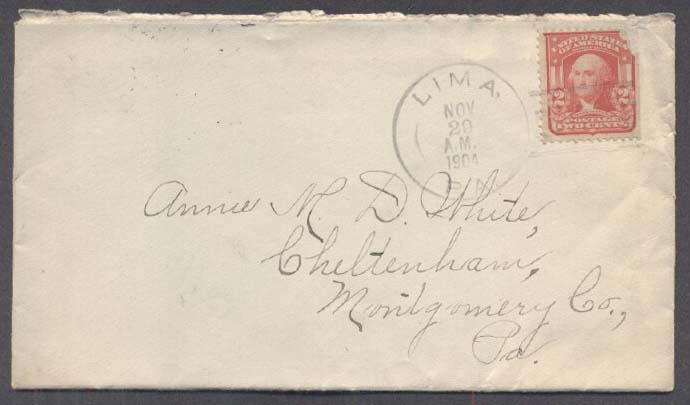 UNITED STATES
OF AMERICA
2 2
POSTAGE
TWO CENTS
LIMA,
NOV
29
A.M.
1904
Annie M. D. White,
Cheltenham,
Montgomery Co.,
Pa.